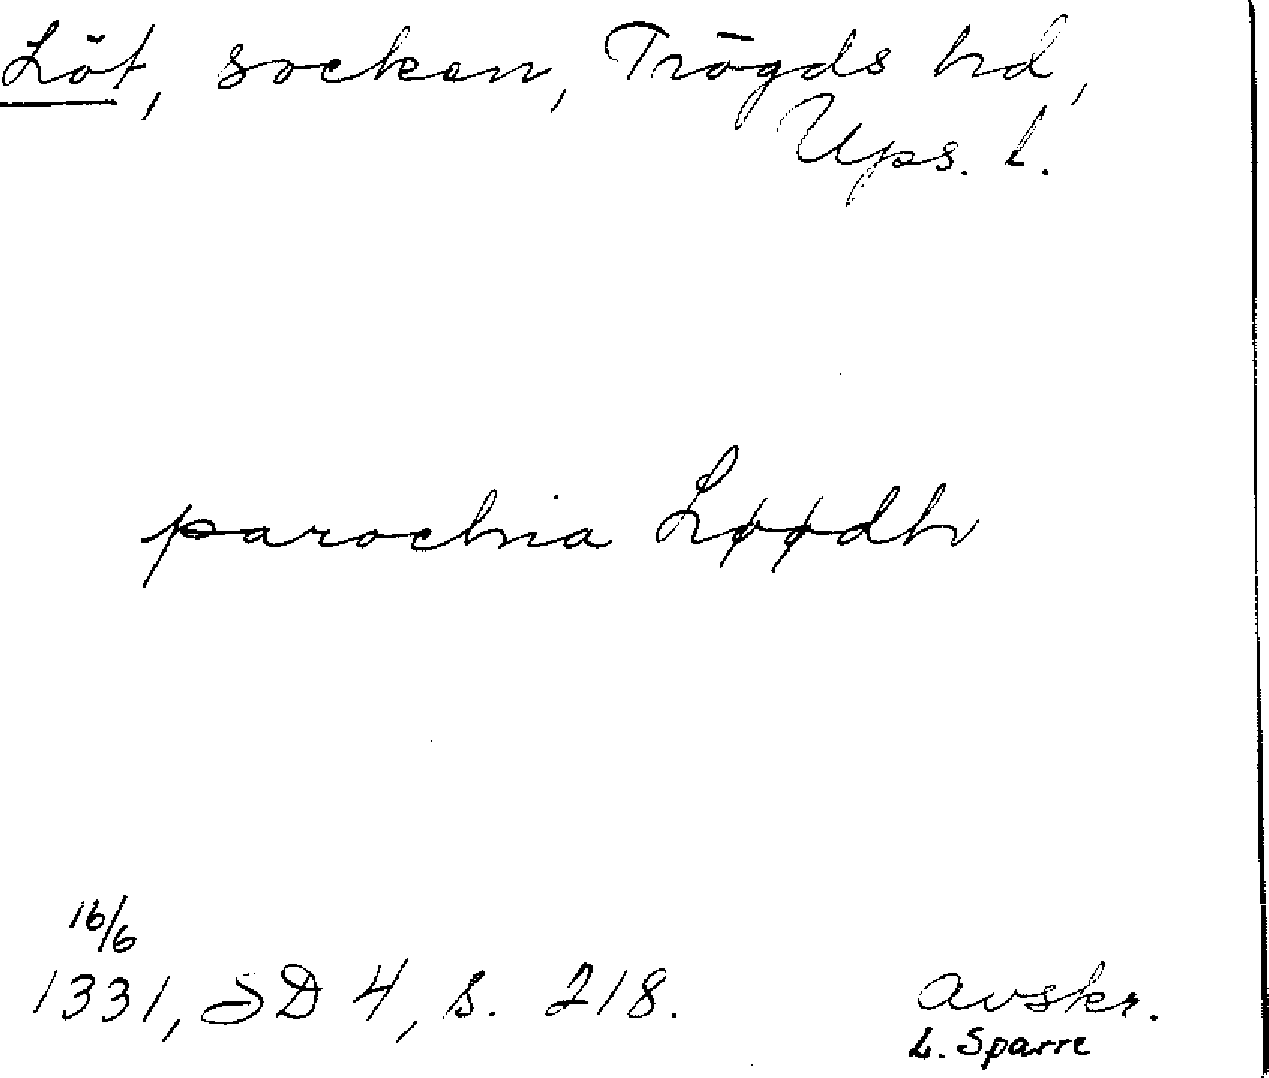 Löt, socken, Trögds hd,
Ups. l.
parochia Løødh
16/6
1331, SD 4, s. 218.
avskr.
L. Sparre